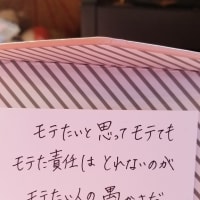 モテたいと思ってモテても
モテた責任はとれないのが
モテたい人の愚かさだ